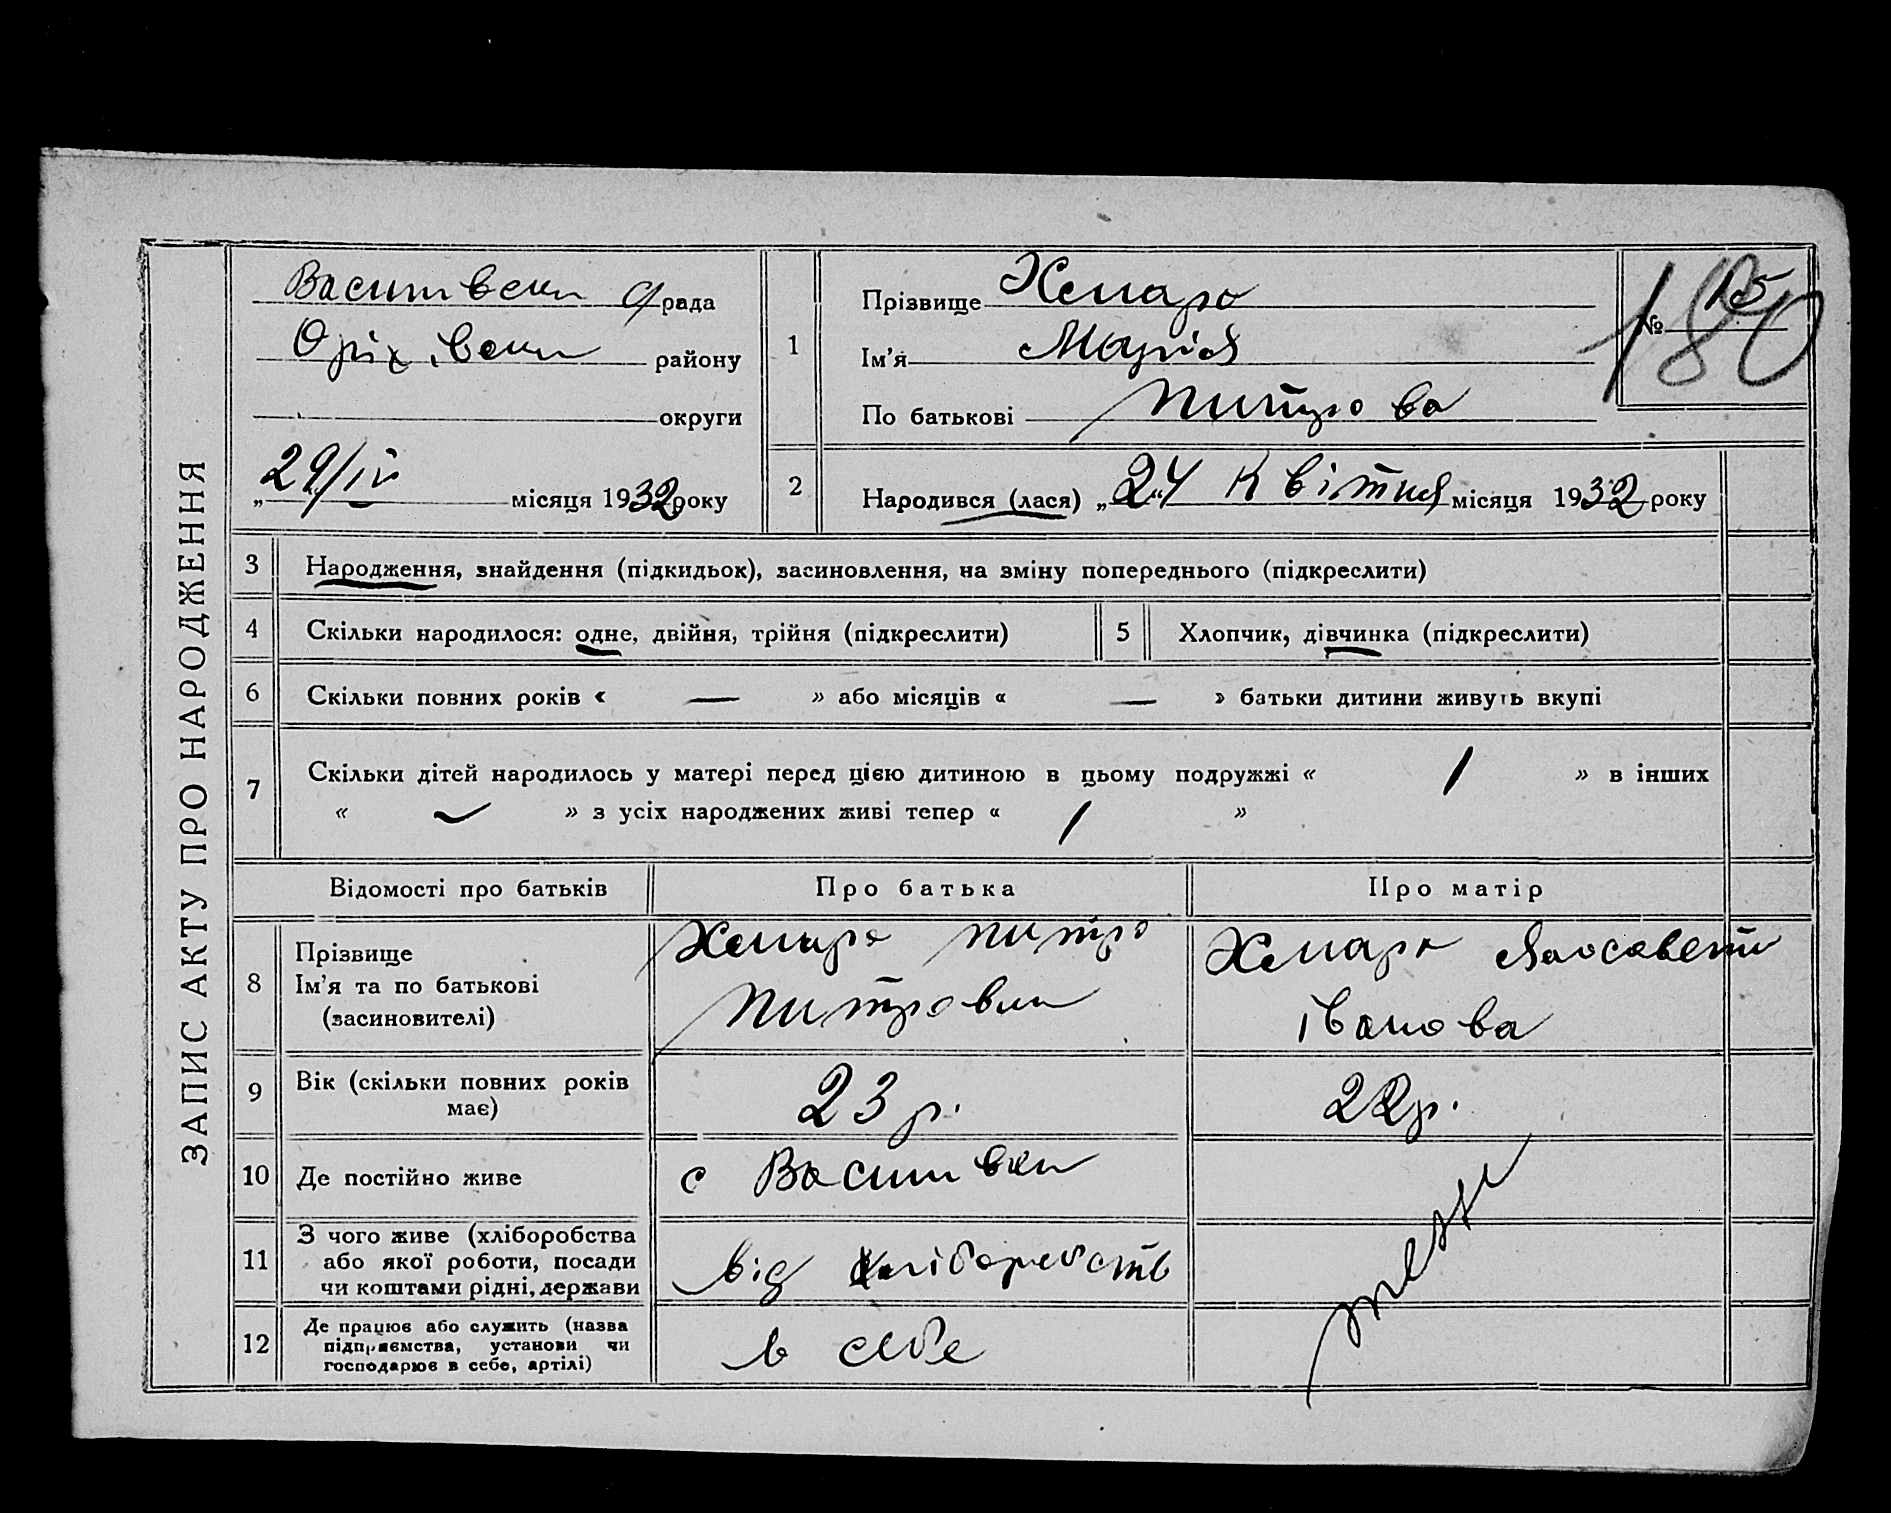 ЗАПИС АКТУ ПРО НАРОДЖЕННЯ
рада
Оріхівськ району
округи
„29/IV“ місяця 1932 року
1
Прізвище Хемара
Ім'я Марія
По батькові Питрова
№ 15
180
2
Народився (лася) „24“ Квітня місяця 1932 року
3 Народження, знайдення (підкидьок), засиновлення, на зміну попереднього (підкреслити)
4 Скільки народилося: одне, двійня, трійня (підкреслити)
5 Хлопчик, дівчинка (підкреслити)
6 Скільки повних років « — » або місяців « — » батьки дитини живуть вкупі
7 Скільки дітей народилось у матері перед цією дитиною в цьому подружжі « 1 » в інших
« » з усіх народжених живі тепер « 1 »
Відомості про батьків
Про батька
Про матір
8 Прізвище
Ім'я та по батькові
(засиновителі)
Хемара Питро
Питрович
Хемара
Іванова
9 Вік (скільки повних років
має)
23 р.
22 р.
10 Де постійно живе
с
11 З чого живе (хліборобства
або якої роботи, посади
чи коштами рідні, держави
від хліборобств
12 Де працює або служить (назва
підприємства, установи чи
господарює в себе, артілі)
в себе
теж